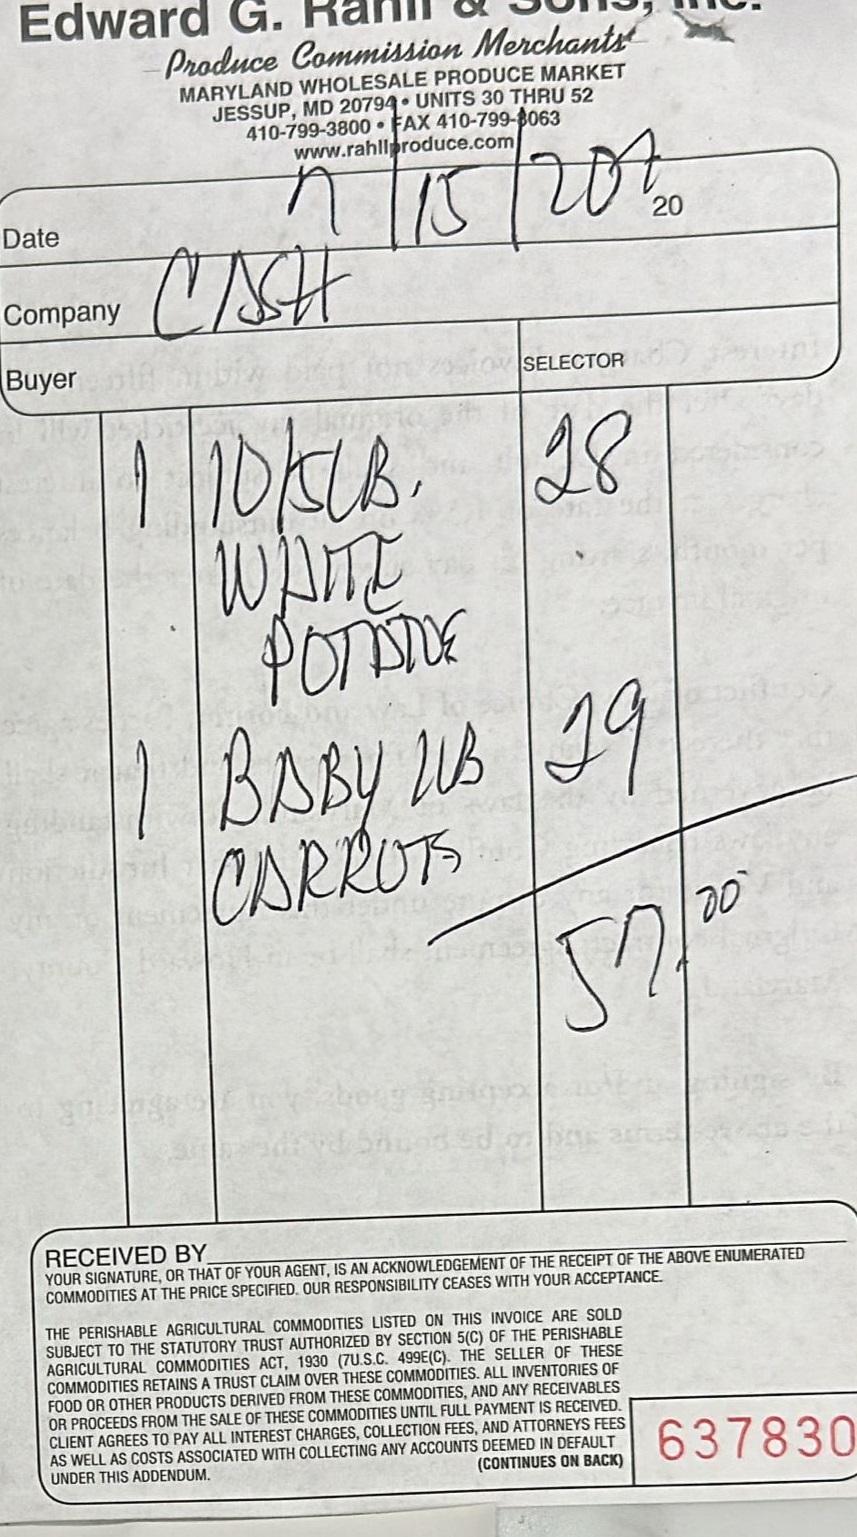 Edward G. Rahll & Sons, Inc.
Produce Commission Merchants
MARYLAND WHOLESALE PRODUCE MARKET
JESSUP, MD 20794 • UNITS 30 THRU 52
410-799-3800 • FAX 410-799-8063
www.rahllproduce.com
Date 7/15/ 20
Company CASH
Buyer SELECTOR
1 10/5LB. 28
WHITE
POTATOE
1 BABY 1LB 29
CARROTS
57.00
RECEIVED BY
YOUR SIGNATURE, OR THAT OF YOUR AGENT, IS AN ACKNOWLEDGEMENT OF THE RECEIPT OF THE ABOVE ENUMERATED
COMMODITIES AT THE PRICE SPECIFIED. OUR RESPONSIBILITY CEASES WITH YOUR ACCEPTANCE.
THE PERISHABLE AGRICULTURAL COMMODITIES LISTED ON THIS INVOICE ARE SOLD
SUBJECT TO THE STATUTORY TRUST AUTHORIZED BY SECTION 5(C) OF THE PERISHABLE
AGRICULTURAL COMMODITIES ACT, 1930 (7U.S.C. 499E(C). THE SELLER OF THESE
COMMODITIES RETAINS A TRUST CLAIM OVER THESE COMMODITIES. ALL INVENTORIES OF
FOOD OR OTHER PRODUCTS DERIVED FROM THESE COMMODITIES, AND ANY RECEIVABLES
OR PROCEEDS FROM THE SALE OF THESE COMMODITIES UNTIL FULL PAYMENT IS RECEIVED.
CLIENT AGREES TO PAY ALL INTEREST CHARGES, COLLECTION FEES, AND ATTORNEYS FEES
AS WELL AS COSTS ASSOCIATED WITH COLLECTING ANY ACCOUNTS DEEMED IN DEFAULT
UNDER THIS ADDENDUM. (CONTINUES ON BACK)
637830